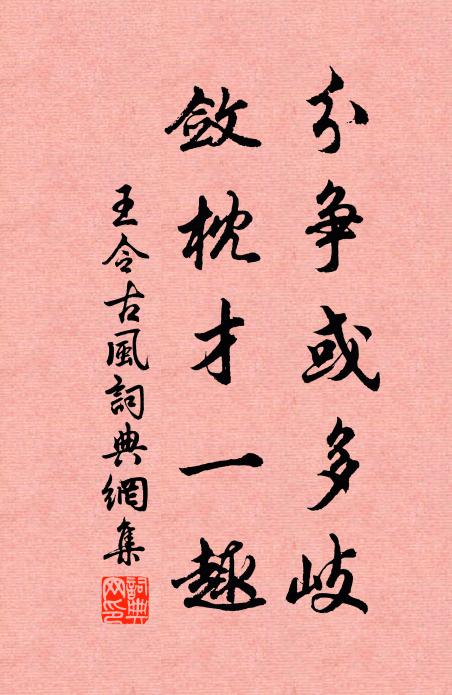 分争或多岐
斂枕才一趣
王令古風詞典網集
詞典网印